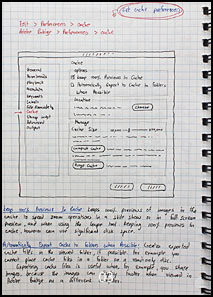 Set cache preferences
Edit > Preferences > Cache
Adobe Bridge > Preferences > Cache
Cache
General
Options
Thumbnails
Keep 100% Previews In Cache
Playback
Automatically Export Cache to Folders
Metadata
When Possible
Keywords
Labels
Location
File Associations
Choose
Cache
Manage
Advanced
Cache Size
Output
Compact Cache
Purge Cache
Keep 100% Previews In Cache: Keeps 100% previews of images in
the cache to speed zoom operations in a slide show or in full Screen
Preview, and when using the loupe tool. Keeping 100% previews in
cache, however, can use significant disk space.
Automatically Export Cache to Folders When Possible: Creates exported
cache files in the viewed folder, if possible. For example, you
cannot place cache files in a folder on a read-only disc.
Exporting cache files is useful when, for example, you share
images, because the images can be viewed faster when viewed in
Adobe Bridge on a different computer.